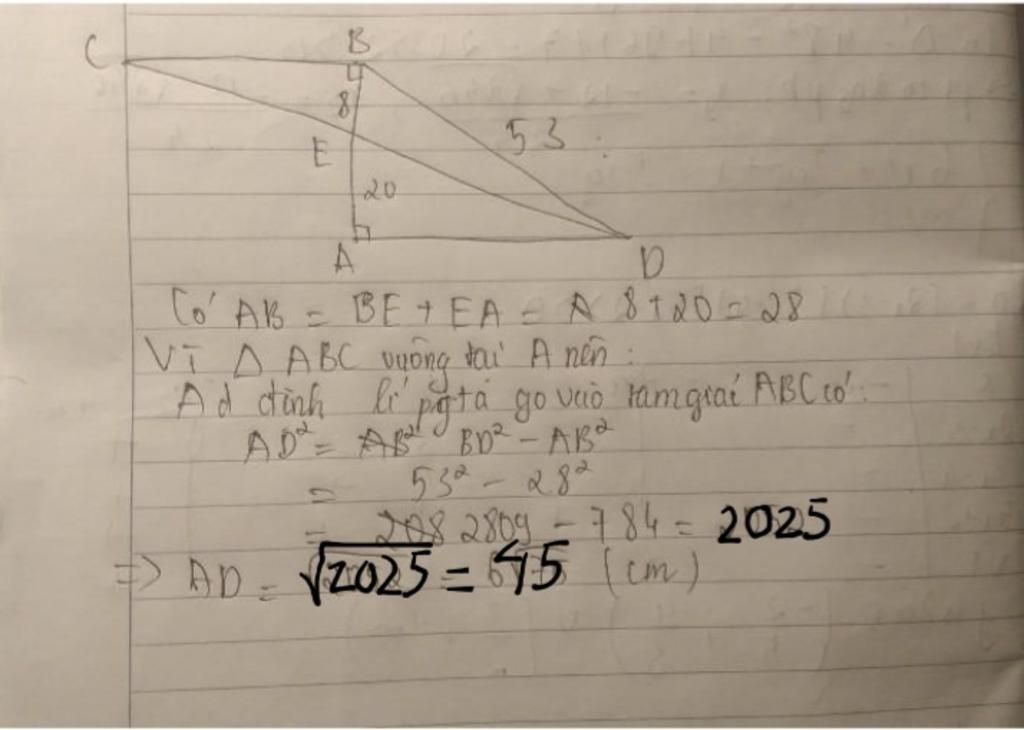 C B
8
53
E
20
A D
Có AB = BE + EA = A 8 + 20 = 28
Vì Δ ABC vuông tại A nên:
Ad định lí pytago vào tam giác ABC có:
AD² = AB² BD² - AB²
= 53² - 28²
= 208 2809 - 784 = 2025
=> AD = √2025 = 45 (cm)